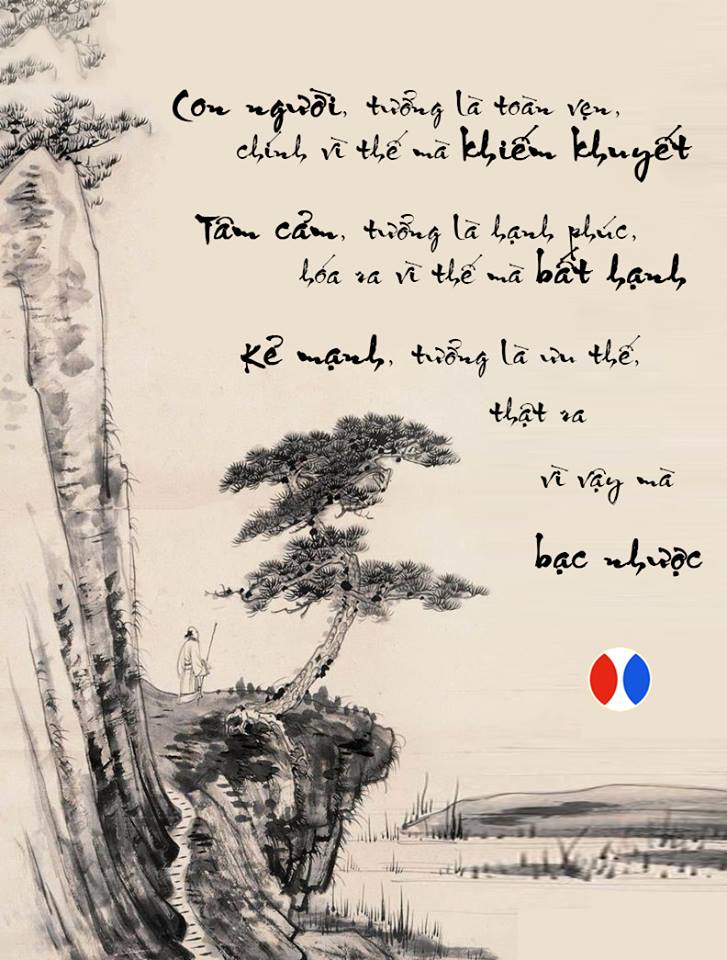 Con người, tưởng là toàn vẹn,
chính vì thế mà khiếm khuyết
Tâm cảm, tưởng là hạnh phúc,
hóa ra vì thế mà bất hạnh
Kẻ mạnh, tưởng là ưu thế,
thật ra
vì vậy mà
bạc nhược